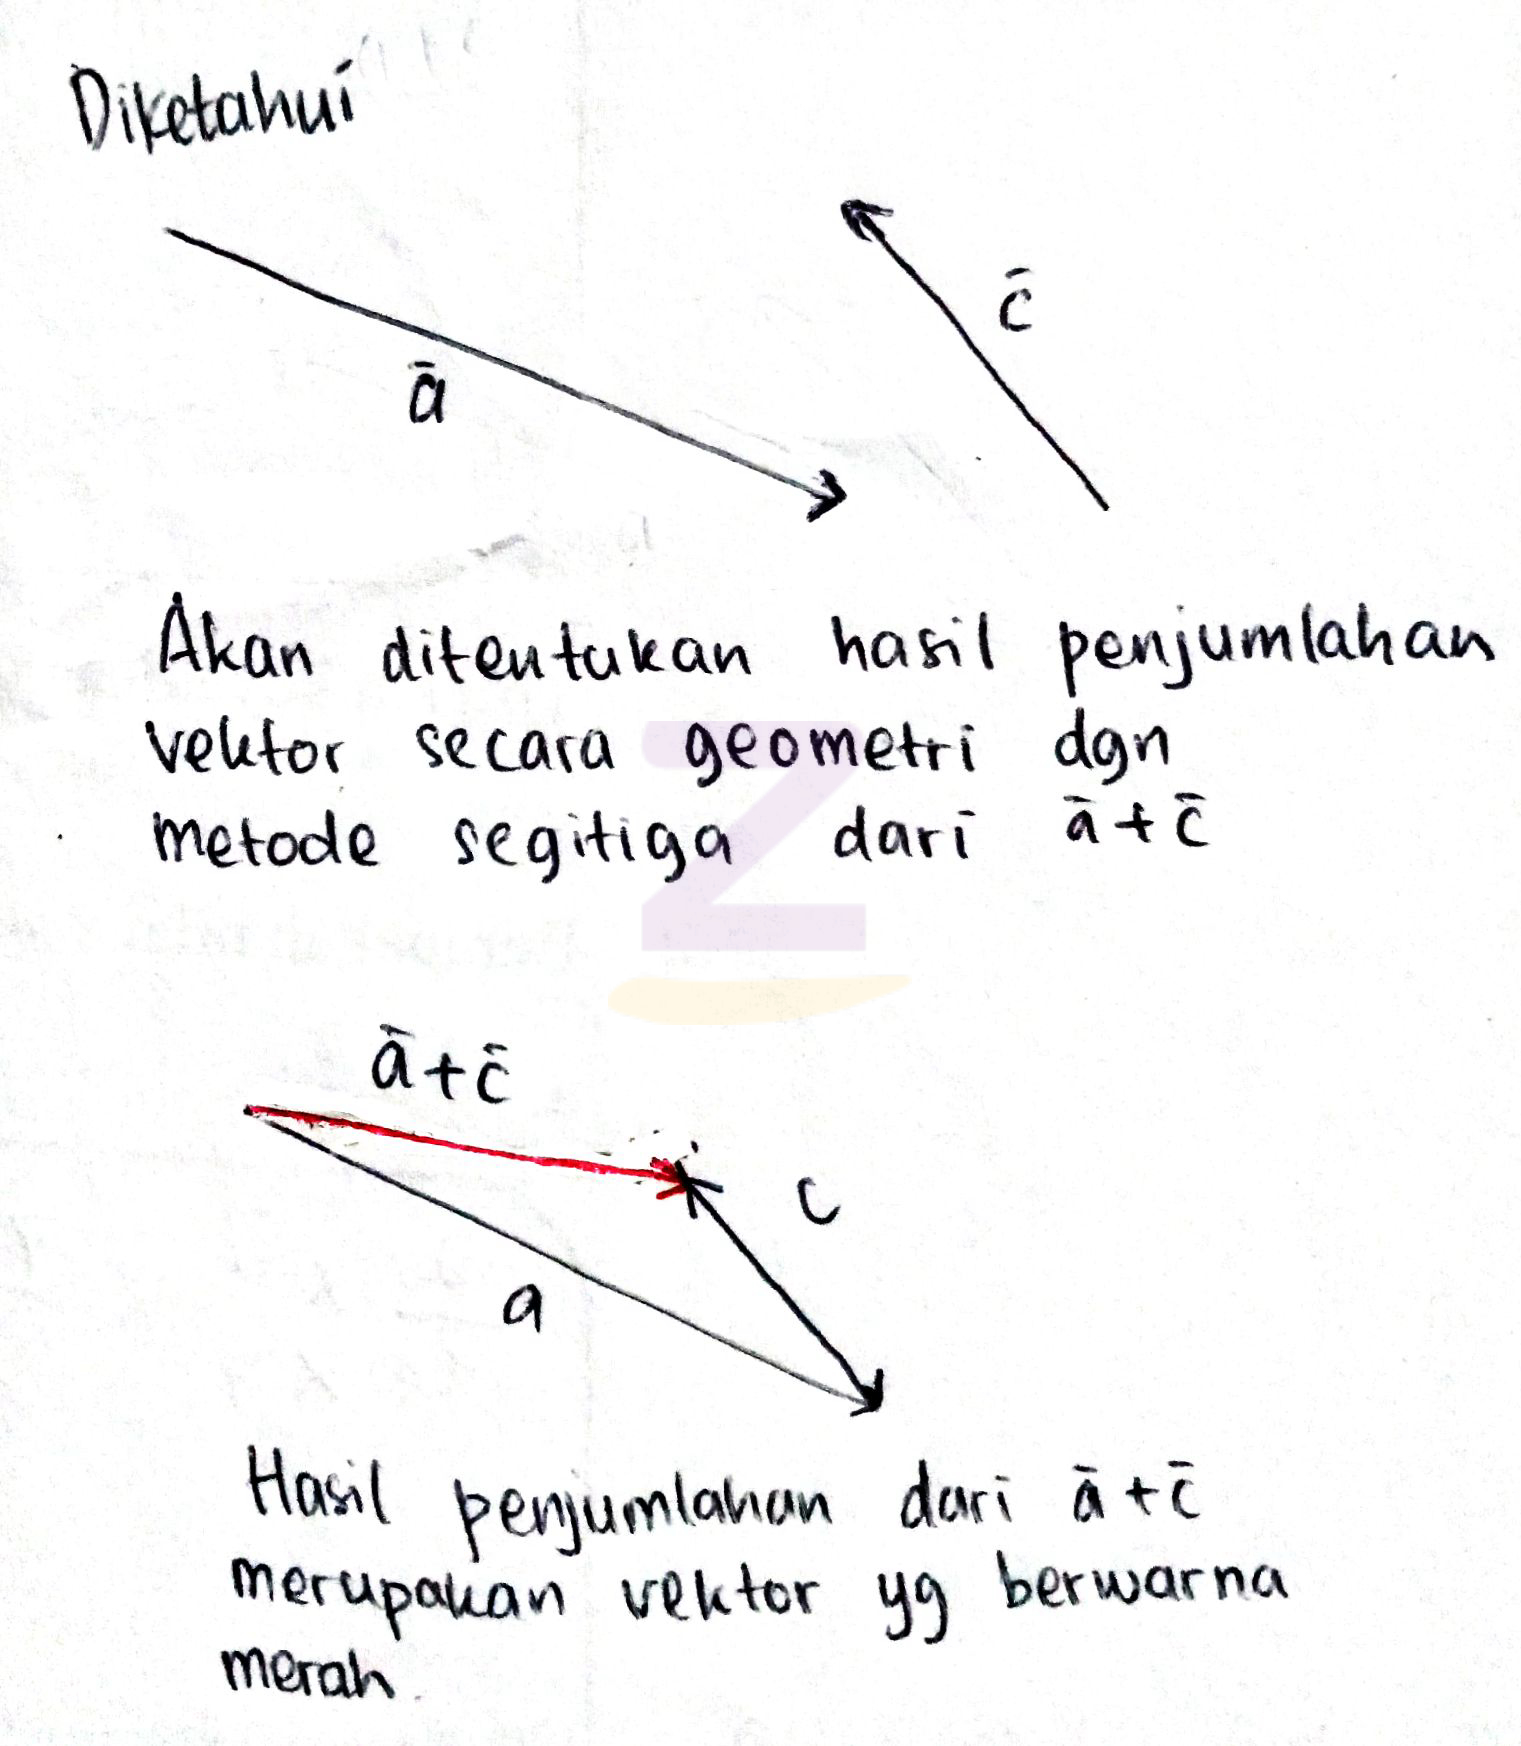 Diketahui
c̄
ā
Akan ditentukan hasil penjumlahan
vektor secara geometri dgn
metode segitiga dari ā + c̄
Z
ā + c̄
c
a
Hasil penjumlahan dari ā + c̄
merupakan vektor yg berwarna
merah.